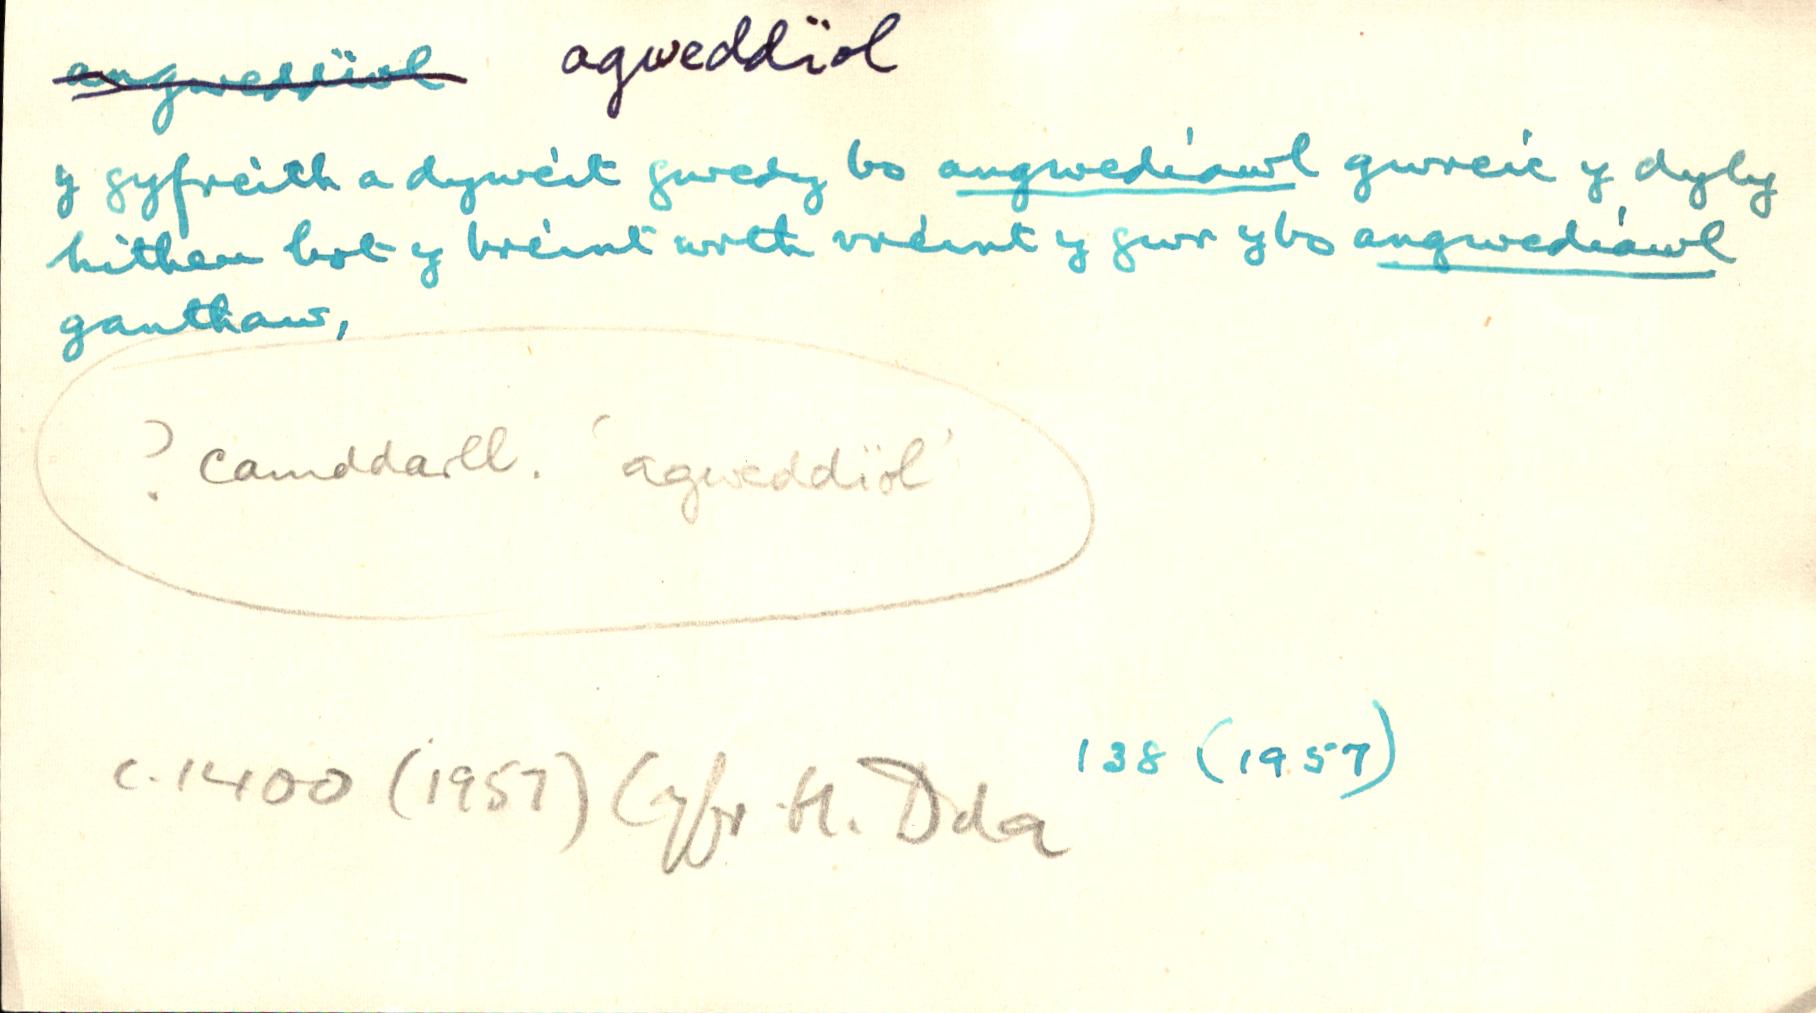 angweddïol agweddïol
y gyfreith a dyweit gwedy bo angwediawl gwreic y dyly
hitheu bot y breint wrth vreint y gwr y bo angwediawl
ganthaw,
? camddarll. 'agweddïol'
138 (1957)
c. 1400 (1957) Cyfr H. Dda